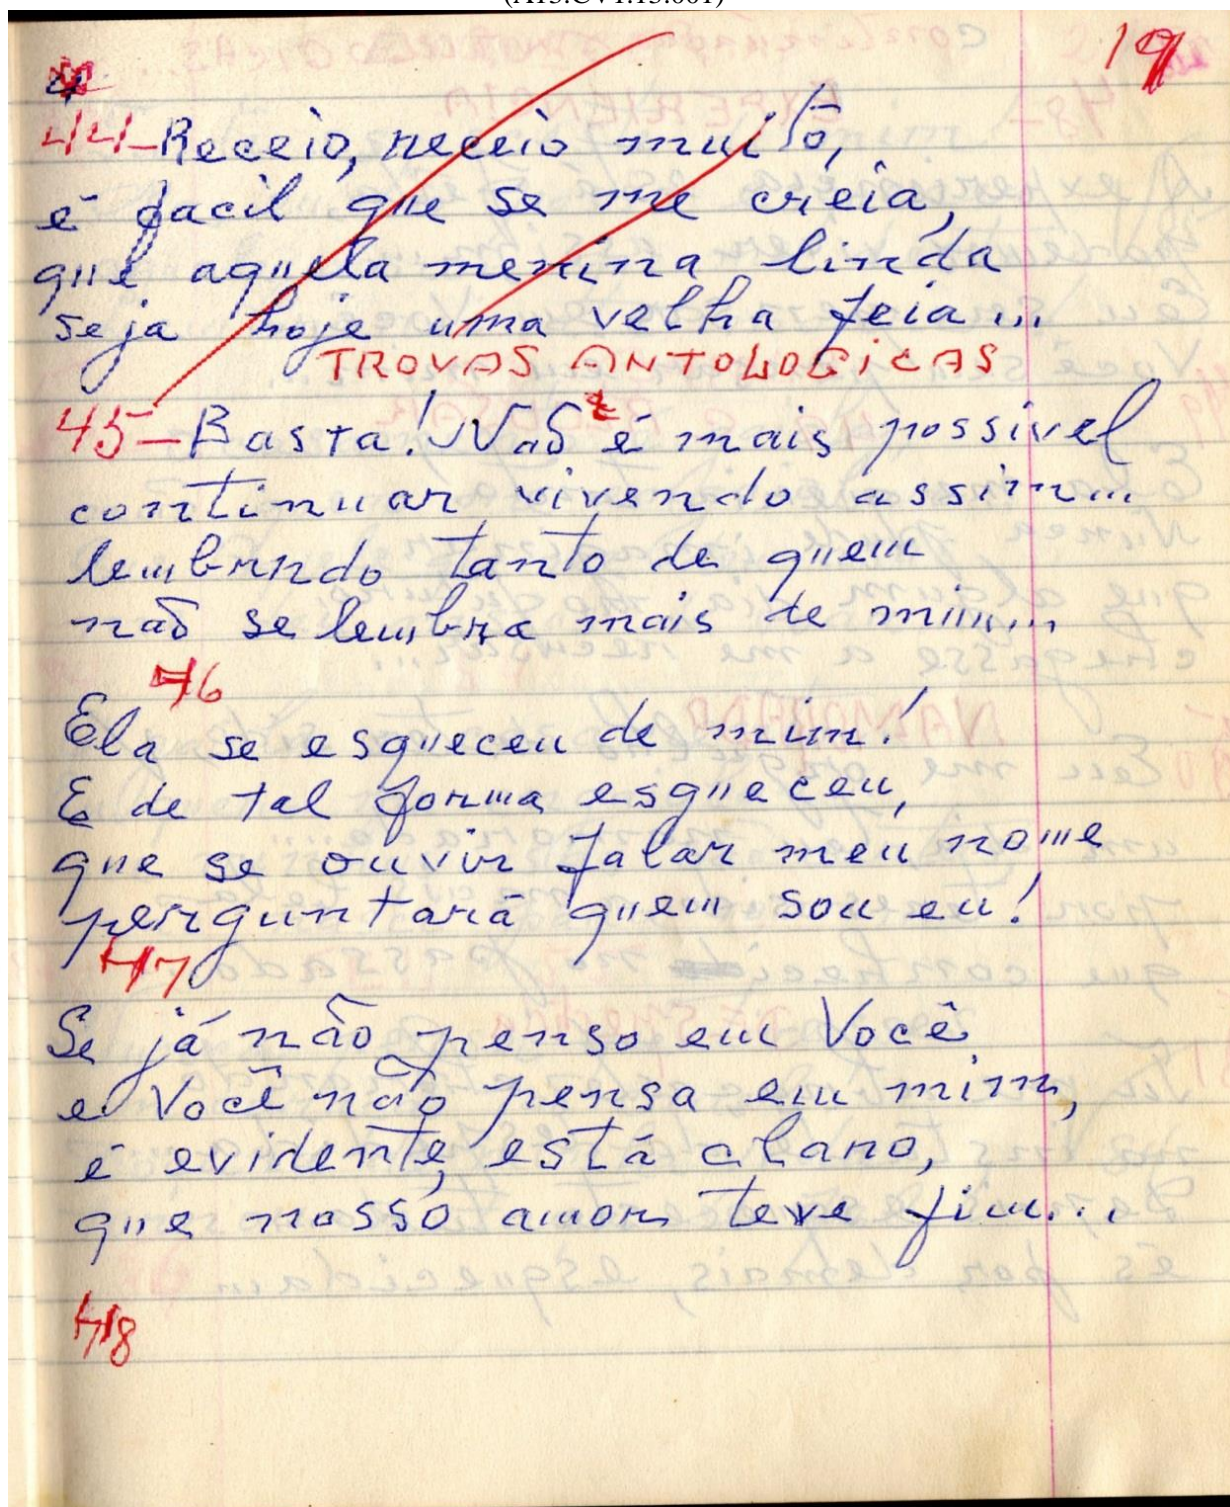 19
44-Receio, receio muito,
é facil que se me creia,
que aquela menina linda
seja hoje uma velha feia...
TROVAS ANTOLOGICAS
45-Basta! Não é mais possível
continuar vivendo assim...
lembrndo tanto de quem
não se lembra mais de mim...
46
Ela se esqueceu de mim!
E de tal forma esqueceu,
que se ouvir falar meu nome
perguntará quem sou eu!
47
Se já não penso em Você
e Você não pensa em mim,
é evidente, está claro,
que nosso amor teve fim...
48